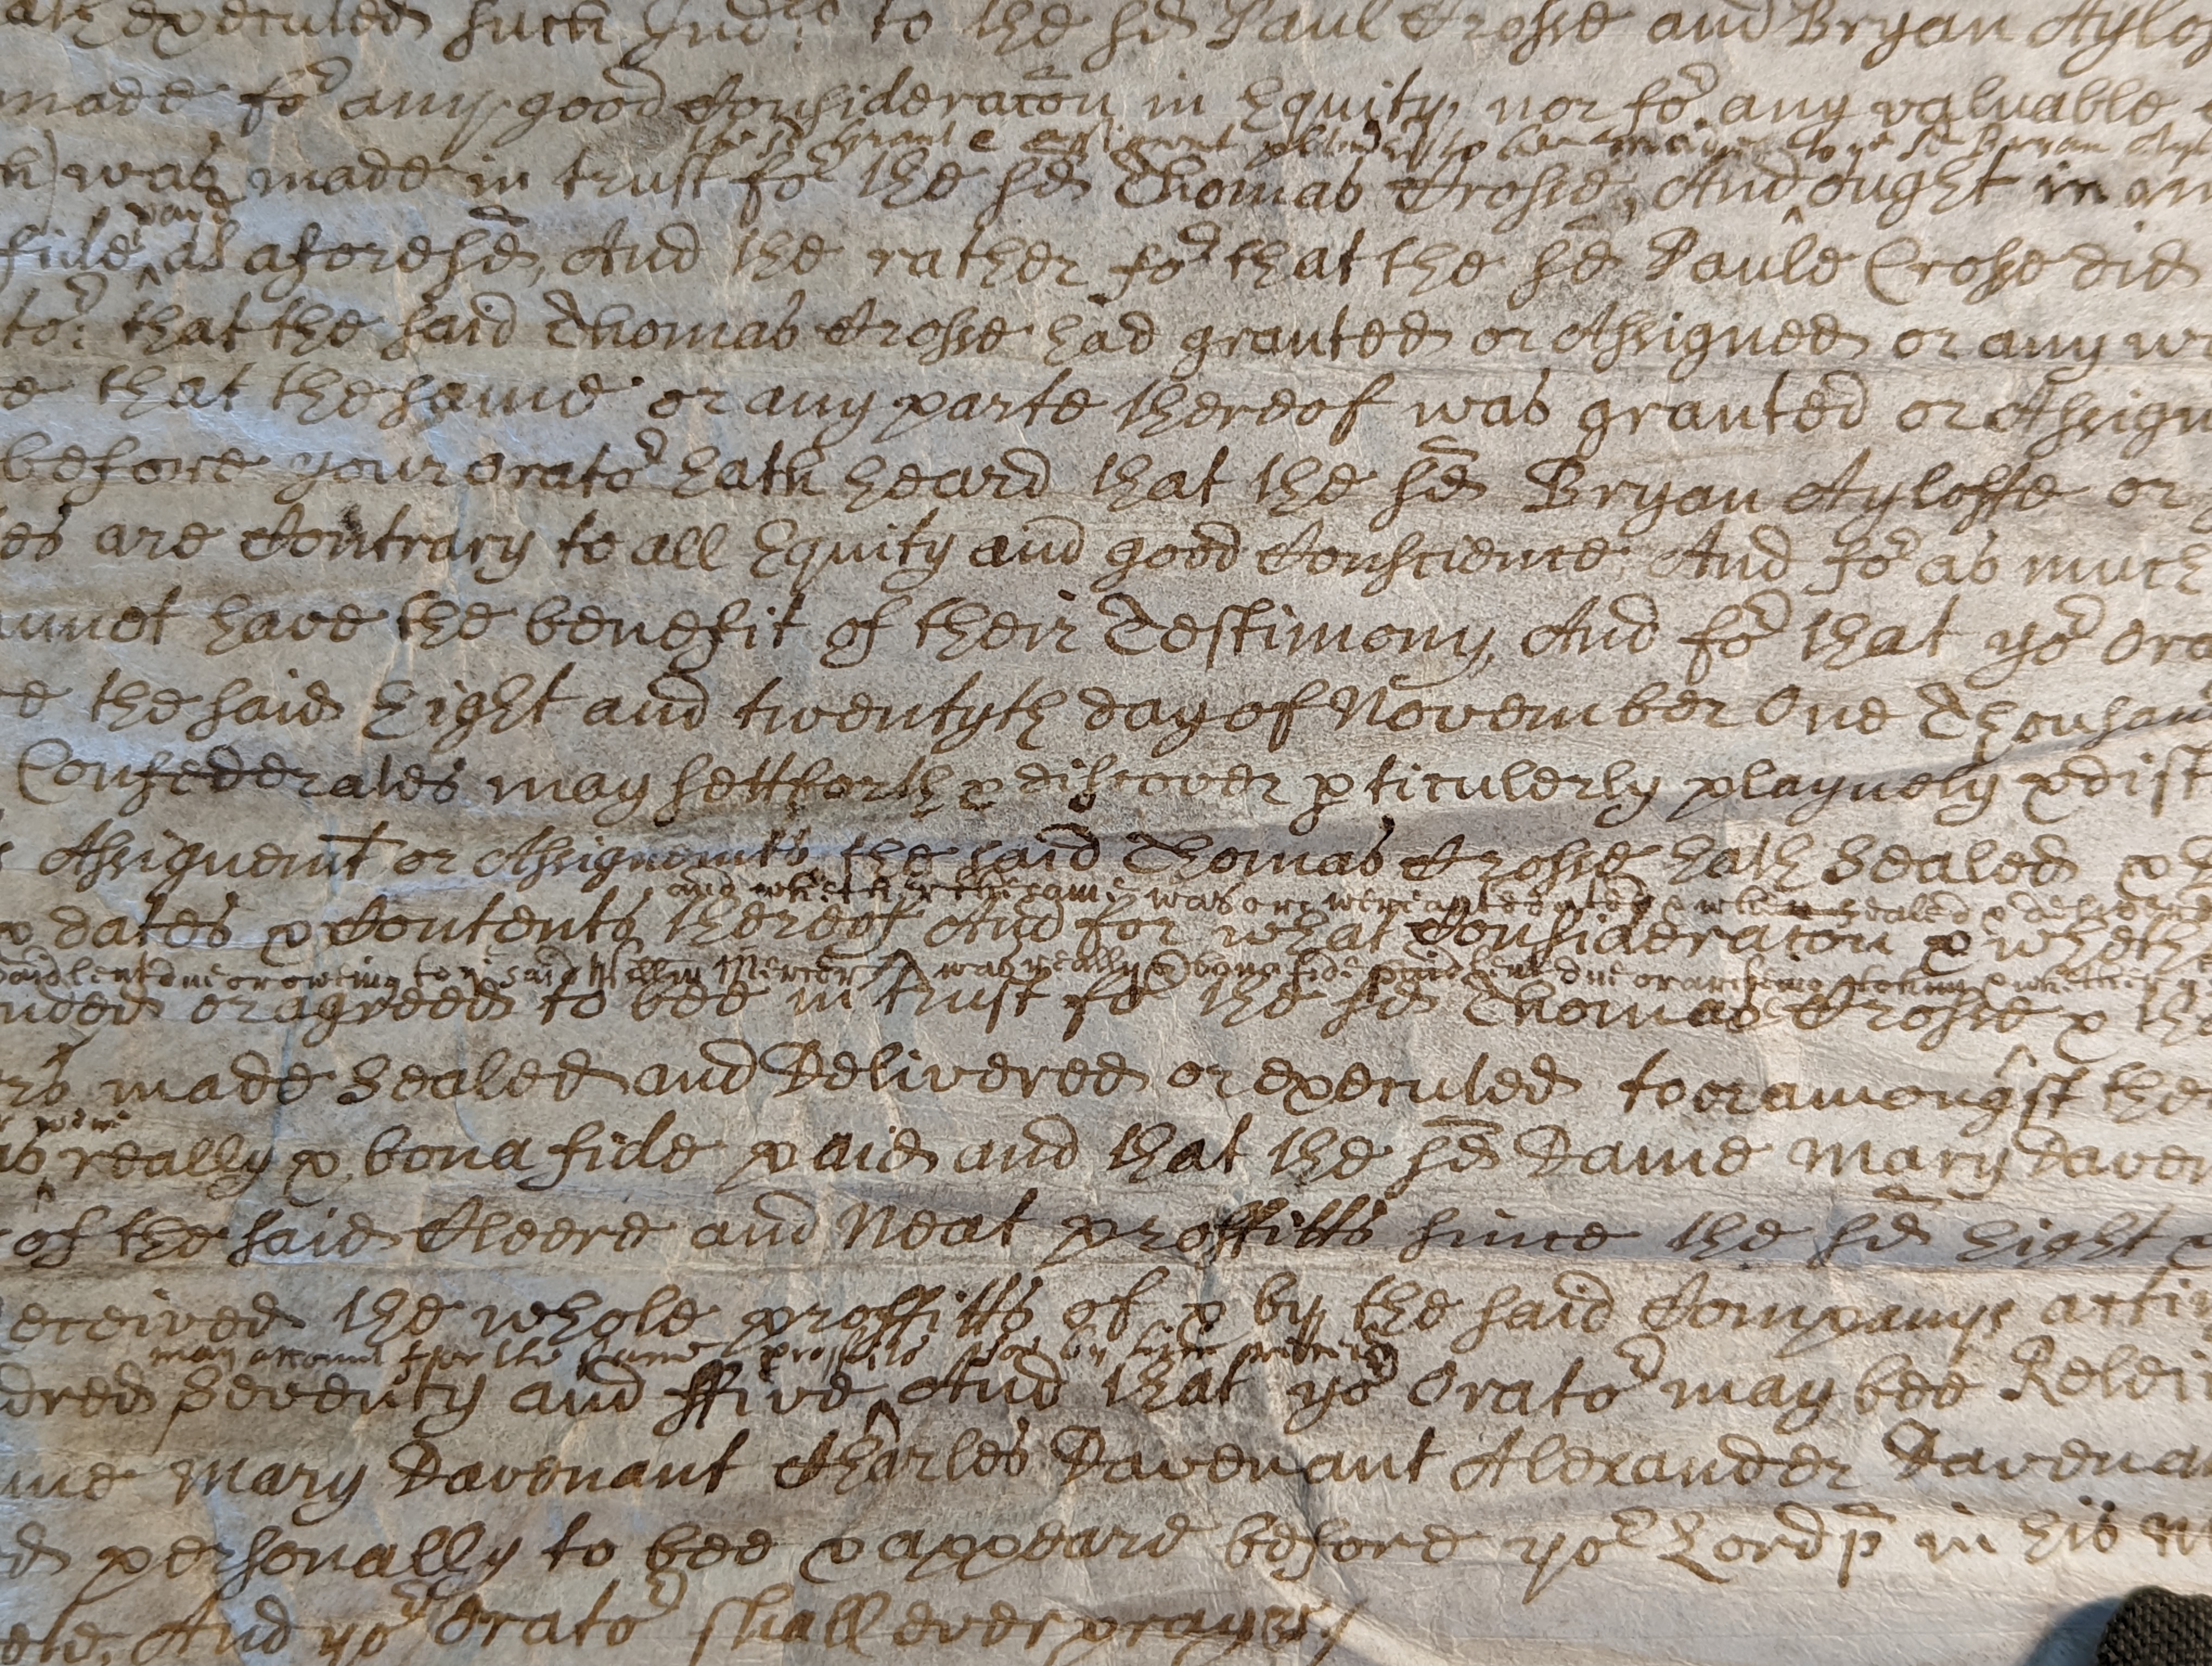 executed such Ind.rs to the sd Paul Crosse and Bryan Aylof
made for any good Consideracon in Equity, nor for any valuable
was made in trust for the sd Thomas Crosse, And ought in
voyd
fide as aforesd, And the rather for that the sd Paule Crosse did
tor: that the said Thomas Crosse had granted or Assigned or any
that the same or any parte thereof was granted or Assign
before your orator hath heard that the sd Bryan Ayloffe or
are Contrary to all Equity and good Conscience, And for as much
have the benefit of their Testimony, And for that yor Ora
the said Eight and twentyth day of November One Thousan
Confederates may settforth & discover pticulerly playnely & dist
Assignemt or Assignemts the said Thomas Crosse hath Sealed &
and whether the same was or were antedated & when sealed &
& dates & Contents thereof And for what Consideracon & wheth
paid lent due or oweing to ye said Willm Mercer & was really & bona fide paid lent due or & whether
or agreed to bee in trust for the sd Thomas Crosse & th
made Sealed and Delivered or executed to or amongst the
were
really & bona fide paid and that the sd Dame Mary Daven
of the said Cleere and Neat proffitts since the sd Eight &
the whole proffitts of & by the said Companys acti
may account for the same proffitts
dred Seventy and ffive And that yor Orator may bee Relei
Mary Davenant Charles Davenant Alexander Davenan
personally to bee & appeare before yor Lordp in his
And yor Orator shall ever pray &c